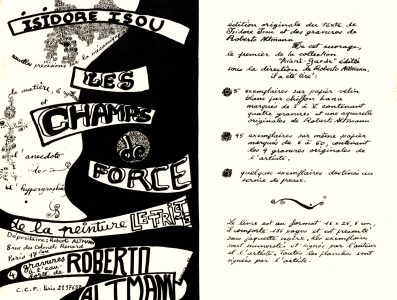 ISIDORE ISOU
LES
la matière, le
CHAMPS
de
l'anecdote
FORCE
l'hypergraphie
de la peinture LETTRISTE
Dépositaire: Roberto ALTMANN
8 rue des Colonels Renard
Paris 17
4 gravures
à l'eau
forte de
ROBERTO
ALTMANN
C.C.P. Paris
édition originale du texte de
Isidore Isou et des gravures de
Roberto Altmann
De cet ouvrage,
le premier de la collection
"Avant-Garde" édité
sous la direction de Roberto Altmann,
il a été tiré:
5 exemplaires sur papier vélin
blanc pur chiffon Lana
marqués de 1 à 5 contenant
quatre gravures et une aquarelle
originales de Roberto Altmann
45 exemplaires sur même papier
marqués de 6 à 50, contenant
les 4 gravures originales de
l'artiste,
quelques exemplaires destinés au
service de presse.
Le livre est au format
il comporte pages et est présenté
sous jaquette noire, les exemplaires
sont numérotés et signés par l'auteur
et l'artiste, toutes les planches sont
signées par l'artiste.